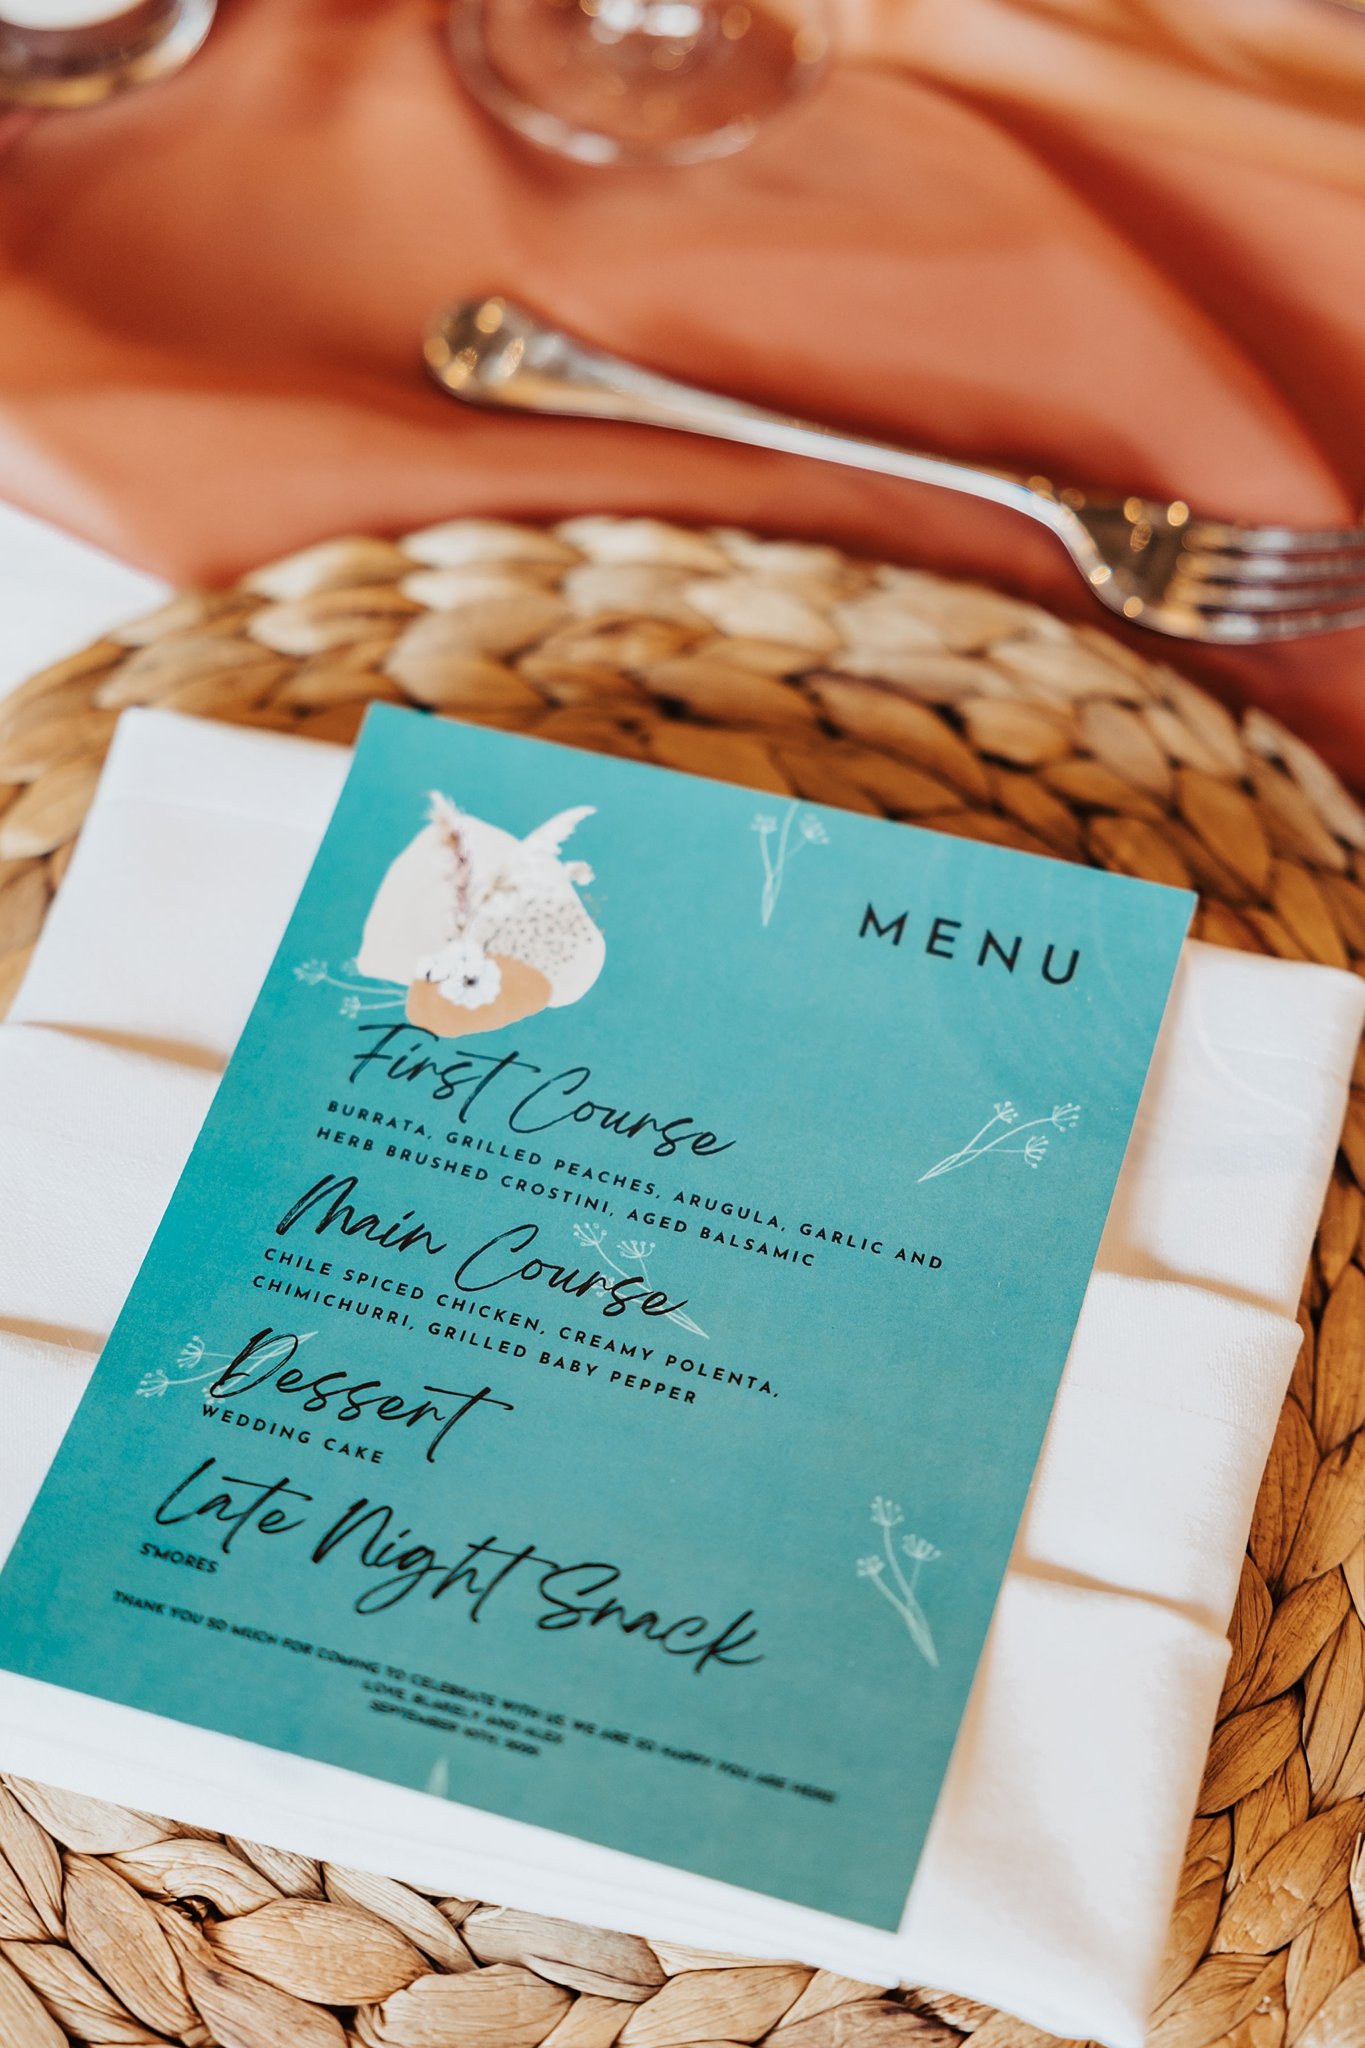 MENU
First Course
BURRATA, GRILLED PEACHES, ARUGULA, GARLIC AND
HERB BRUSHED CROSTINI, AGED BALSAMIC
Main Course
CHILE SPICED CHICKEN, CREAMY POLENTA,
CHIMICHURRI, GRILLED BABY PEPPER
Dessert
WEDDING CAKE
Late Night Snack
S'MORES
THANK YOU SO MUCH FOR COMING TO CELEBRATE WITH US. WE ARE SO HAPPY YOU ARE HERE!
LOVE, BLAKELY AND ALEX
SEPTEMBER 10TH,